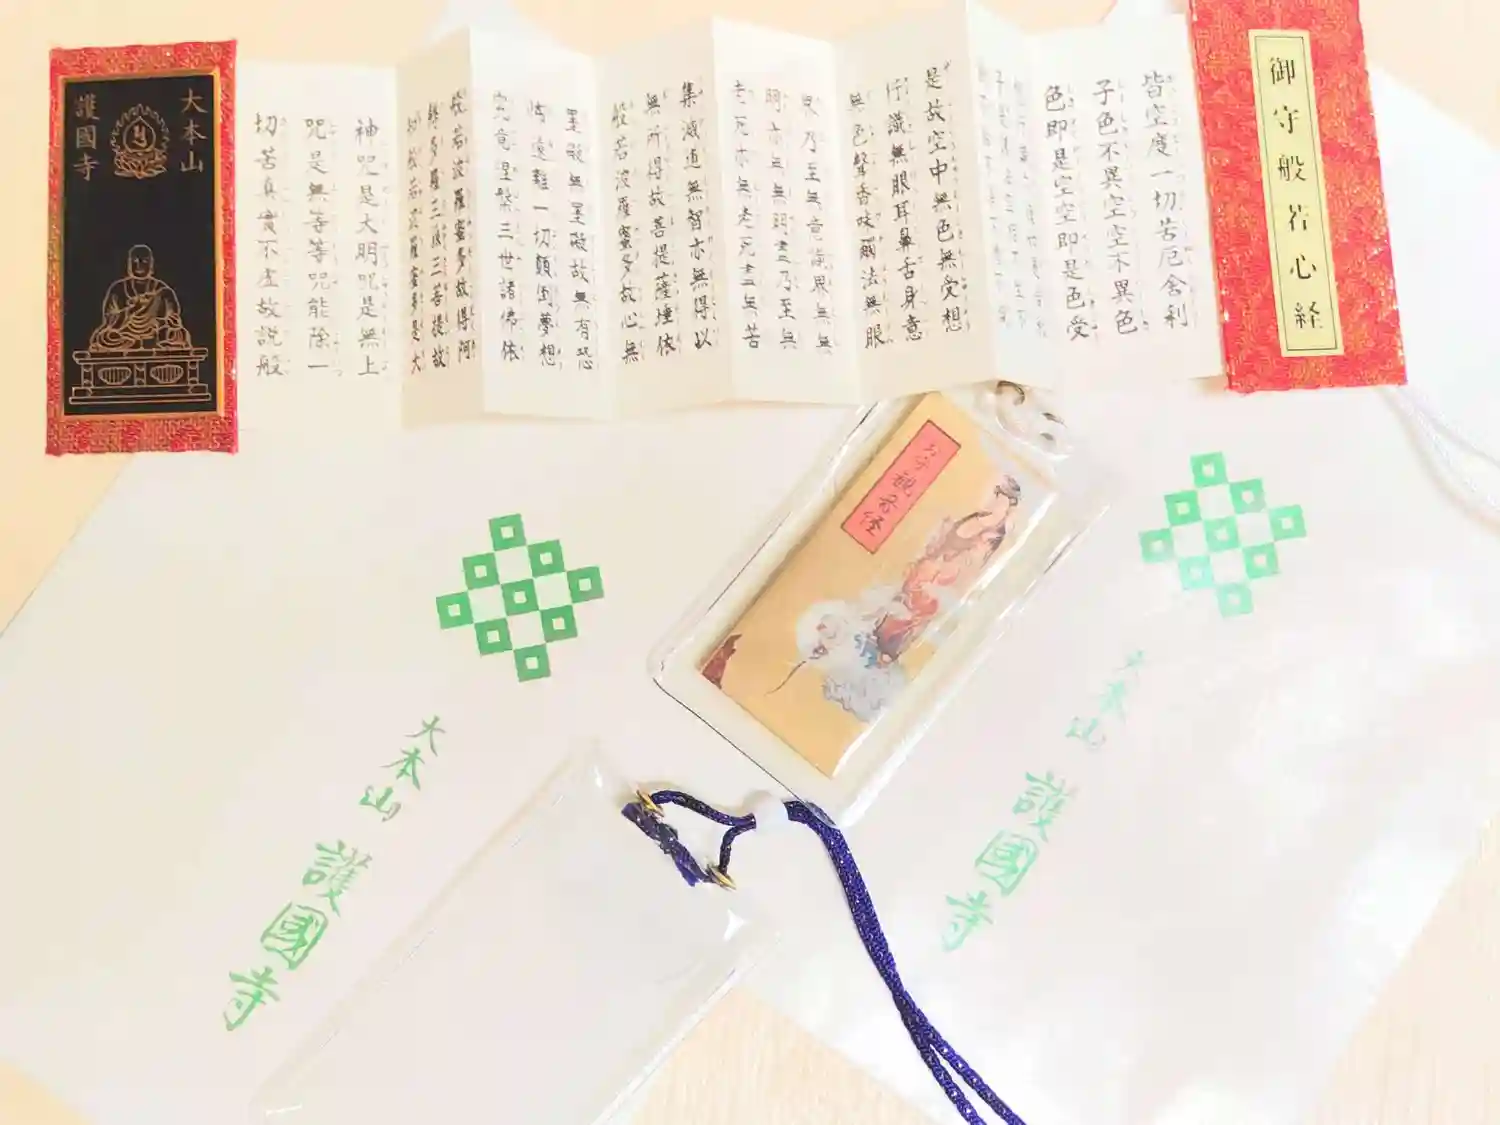 御守般若心経
皆空度一切苦厄舍利
子色不異空空不異色
色即是空空即是色受
是故空中無色無受想
行識無眼耳鼻舌身意
無色聲香味觸法無眼
界乃至無意識界無無
明亦無無明盡乃至無
老死亦無老死盡無苦
集滅道無智亦無得以
無所得故菩提薩埵依
般若波羅蜜多故心無
罣礙無罣礙故無有恐
怖遠離一切顛倒夢想
究竟涅槃三世諸佛依
般若波羅蜜多故得阿
耨多羅三藐三菩提故
知般若波羅蜜多是大
神咒是大明咒是無上
咒是無等等咒能除一
切苦真實不虛故説般
大本山
護國寺
お守観音経
大本山
護國寺
大本山
護國寺